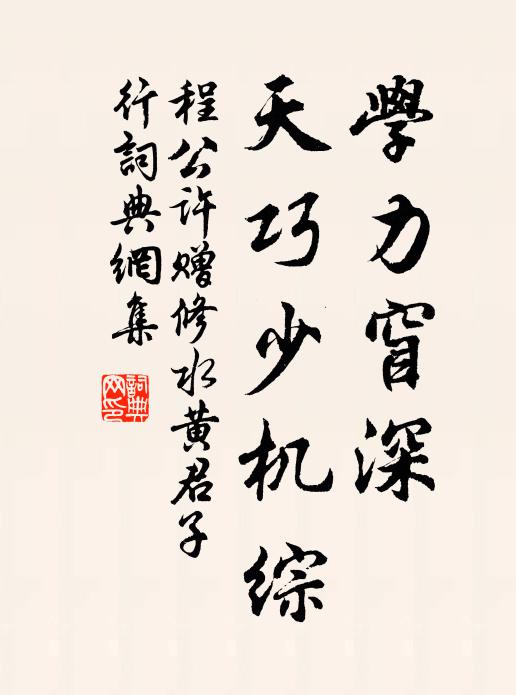 學力窅深
天巧少机綜
程公許贈修水黄君子
行詞典網集
詞典网印